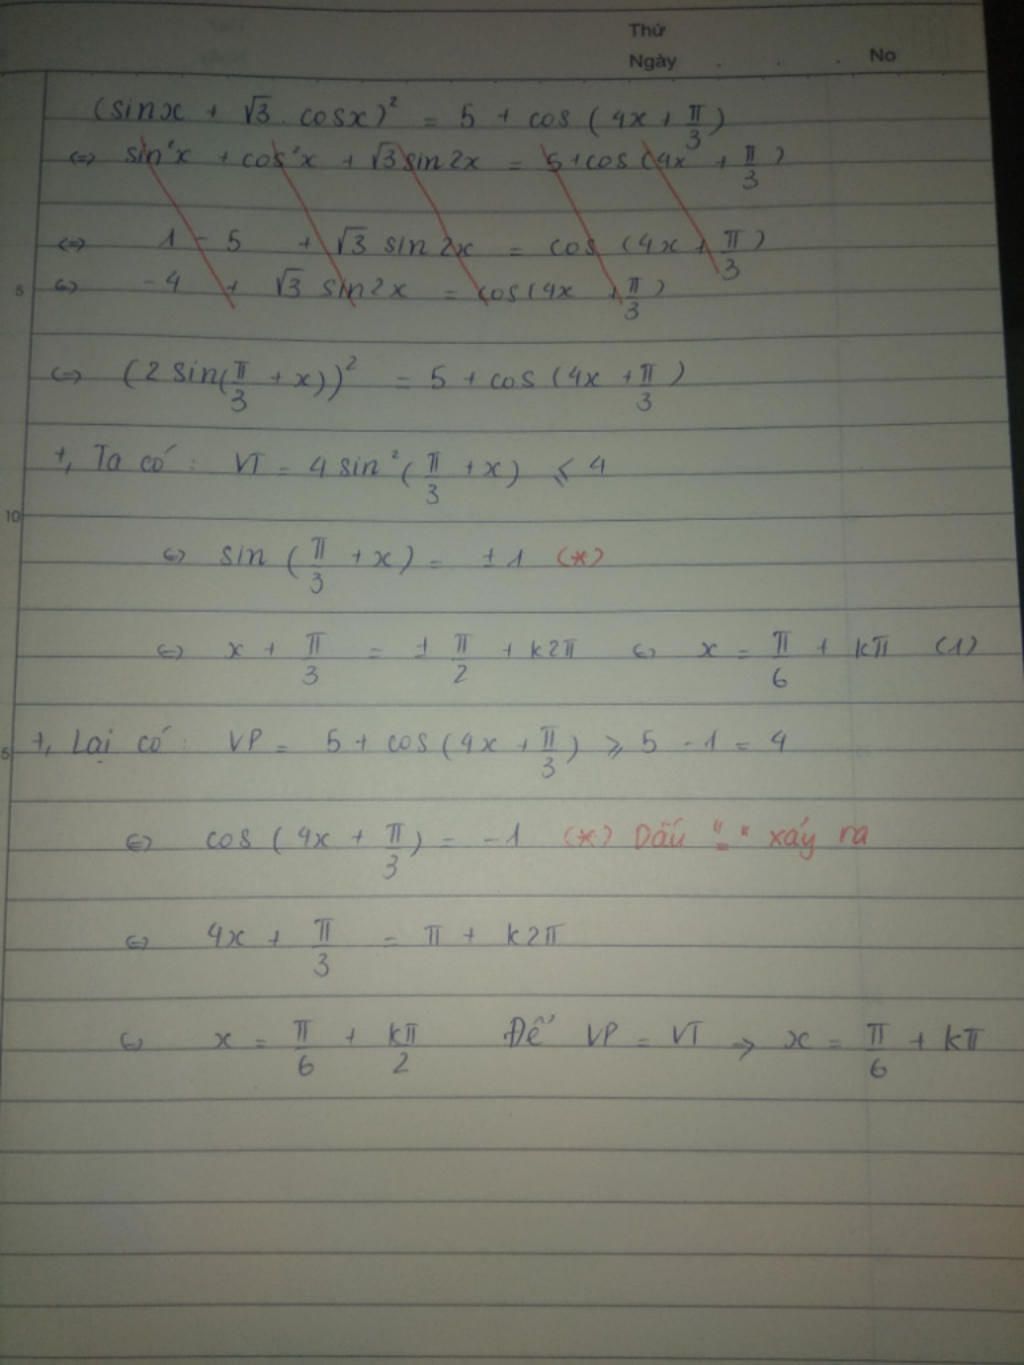 Thứ
Ngày . . . No
(sinx + √3 . cosx)² = 5 + cos (4x + π/3)
<=> sin²x + cos²x + √3 sin2x = 5 + cos (4x + π/3)
<=> 1 - 5 + √3 sin 2x = cos (4x + π/3)
5 <=> -4 + √3 sin2x = cos(4x + π/3)
<=> (2 sin(π/3 + x))² = 5 + cos (4x + π/3)
+, Ta có : VT = 4 sin² (π/3 + x) ≤ 4
10
<=> sin (π/3 + x) = ±1 (*)
<=> x + π/3 = ± π/2 + k2π <=> x = π/6 + kπ (1)
5 +, Lại có : VP = 5 + cos (4x + π/3) ≥ 5 - 1 = 4
<=> cos (4x + π/3) = -1 (*) Dấu "=" xảy ra
<=> 4x + π/3 = π + k2π
<=> x = π/6 + kπ/2 Để VP = VT → x = π/6 + kπ